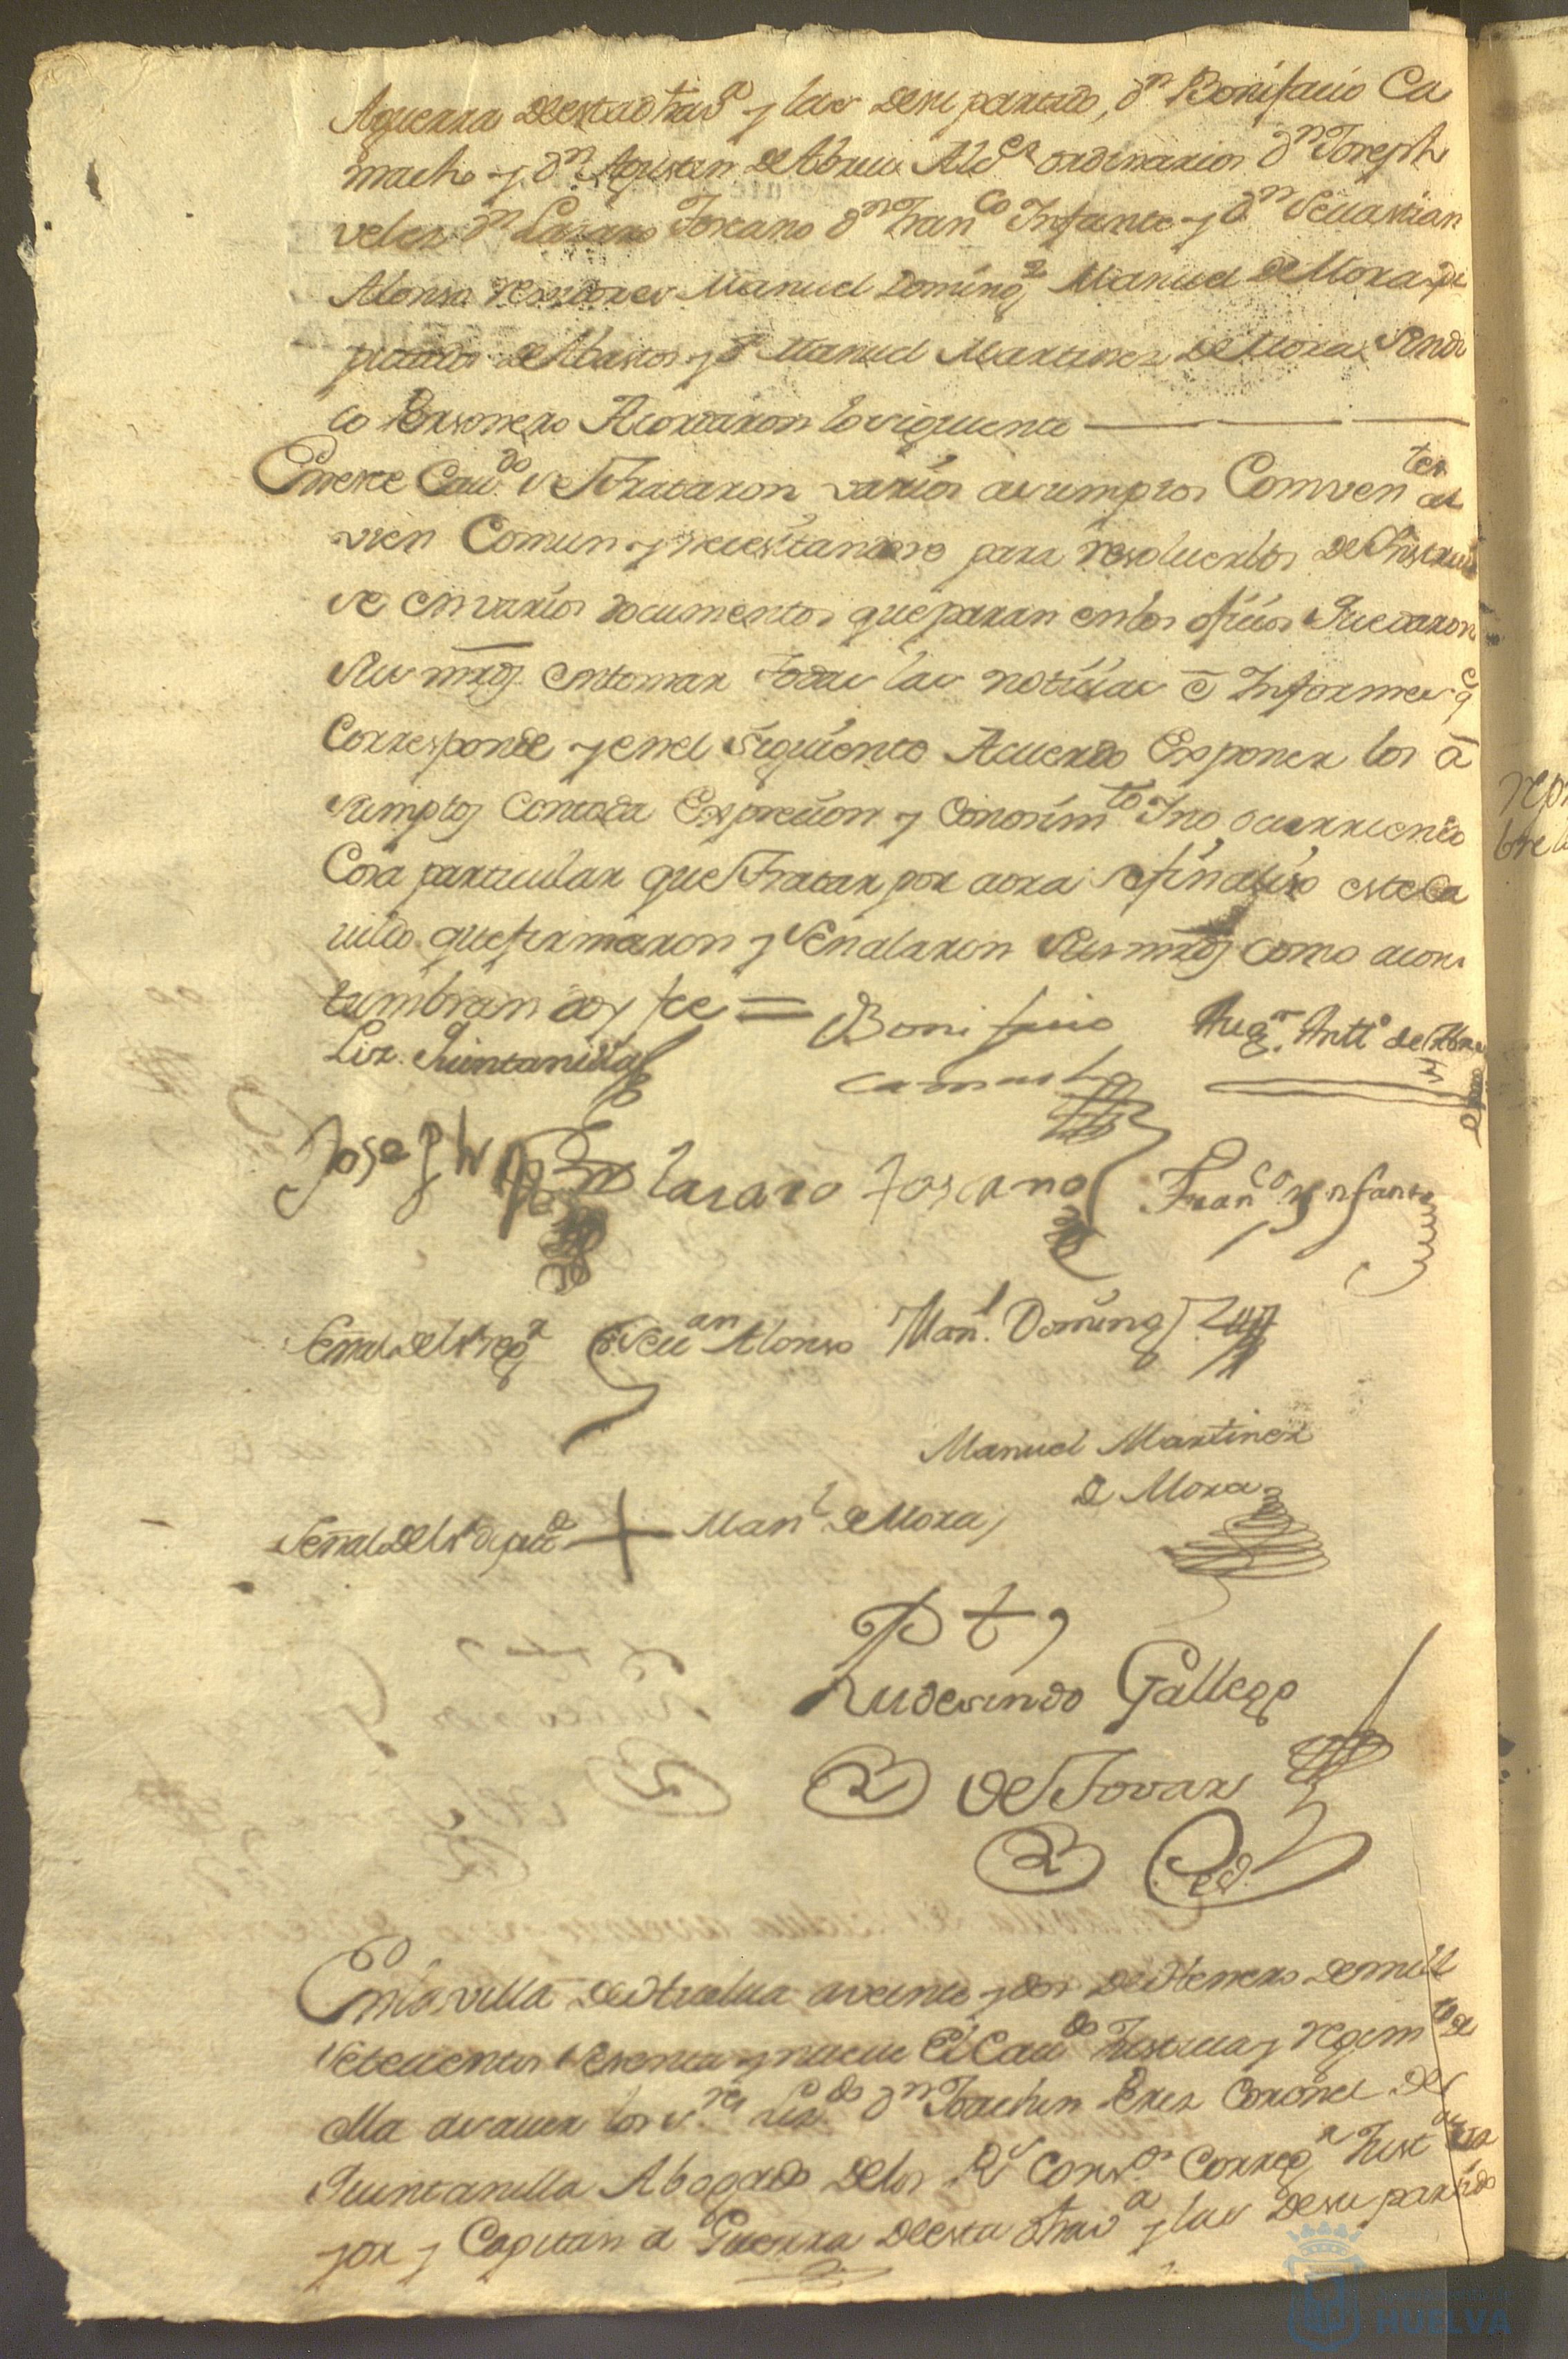 Aguerra de esta dha vª y las de su partido, Dn Bonifacio Ca
macho y Dn Agustan de Abreu Aldes ordinarios Dn Joseph
velez Dn Lazaro Toscano Dn Franco Infante y Dn Sevastian
Alonso rexidores Manuel Doming Manuel de Mora di
putados de Abastos y Dn Manuel Martinez de Mora Sindi
co Personero Acordaron lo siguiente
En este Cavdo se trataron varios asumptos Comventes al
vien Comun y necesitandose para resolverlos de Instruir
se en varios documentos que paran en los ofisios Quedaron
sus mrds en tomar todas las notisias e Informes q
Corresponde y en el siguiente Acuerdo Exponer los a
sumptos con toda Expresion y Conosimto Y no ocurriendo
Cosa particular que tratar por aora se finaliso este Ca
vildo que firmaron y señalaron sus mrds como acos
tumbran doy fee =
Liz. Quintanilla
Bonifacio
camacho
Augn. Antto de Abreu
Joseph
Lazaro Toscano
Franco Ynfante
Señal del Sr regr
Sevan Alonso
Manl. Doming
Manuel Martinez
de Mora
Señal del Sr diputdo
Manl de Mora
Rudesindo Gallego
de Tovar
En la villa de Huelva a veinte y dos de Henero de mill
setecientos sesenta y nueve El Cavdo Justicia y regimto de
ella a saver los Sres Lizdo Dn Joachin Perez Coronel de
Quintanilla Abogado de los Rs Consos Corregr Justa ma
yor y Capitan a Guerra de esta dha vª y las de su partido
HUELVA